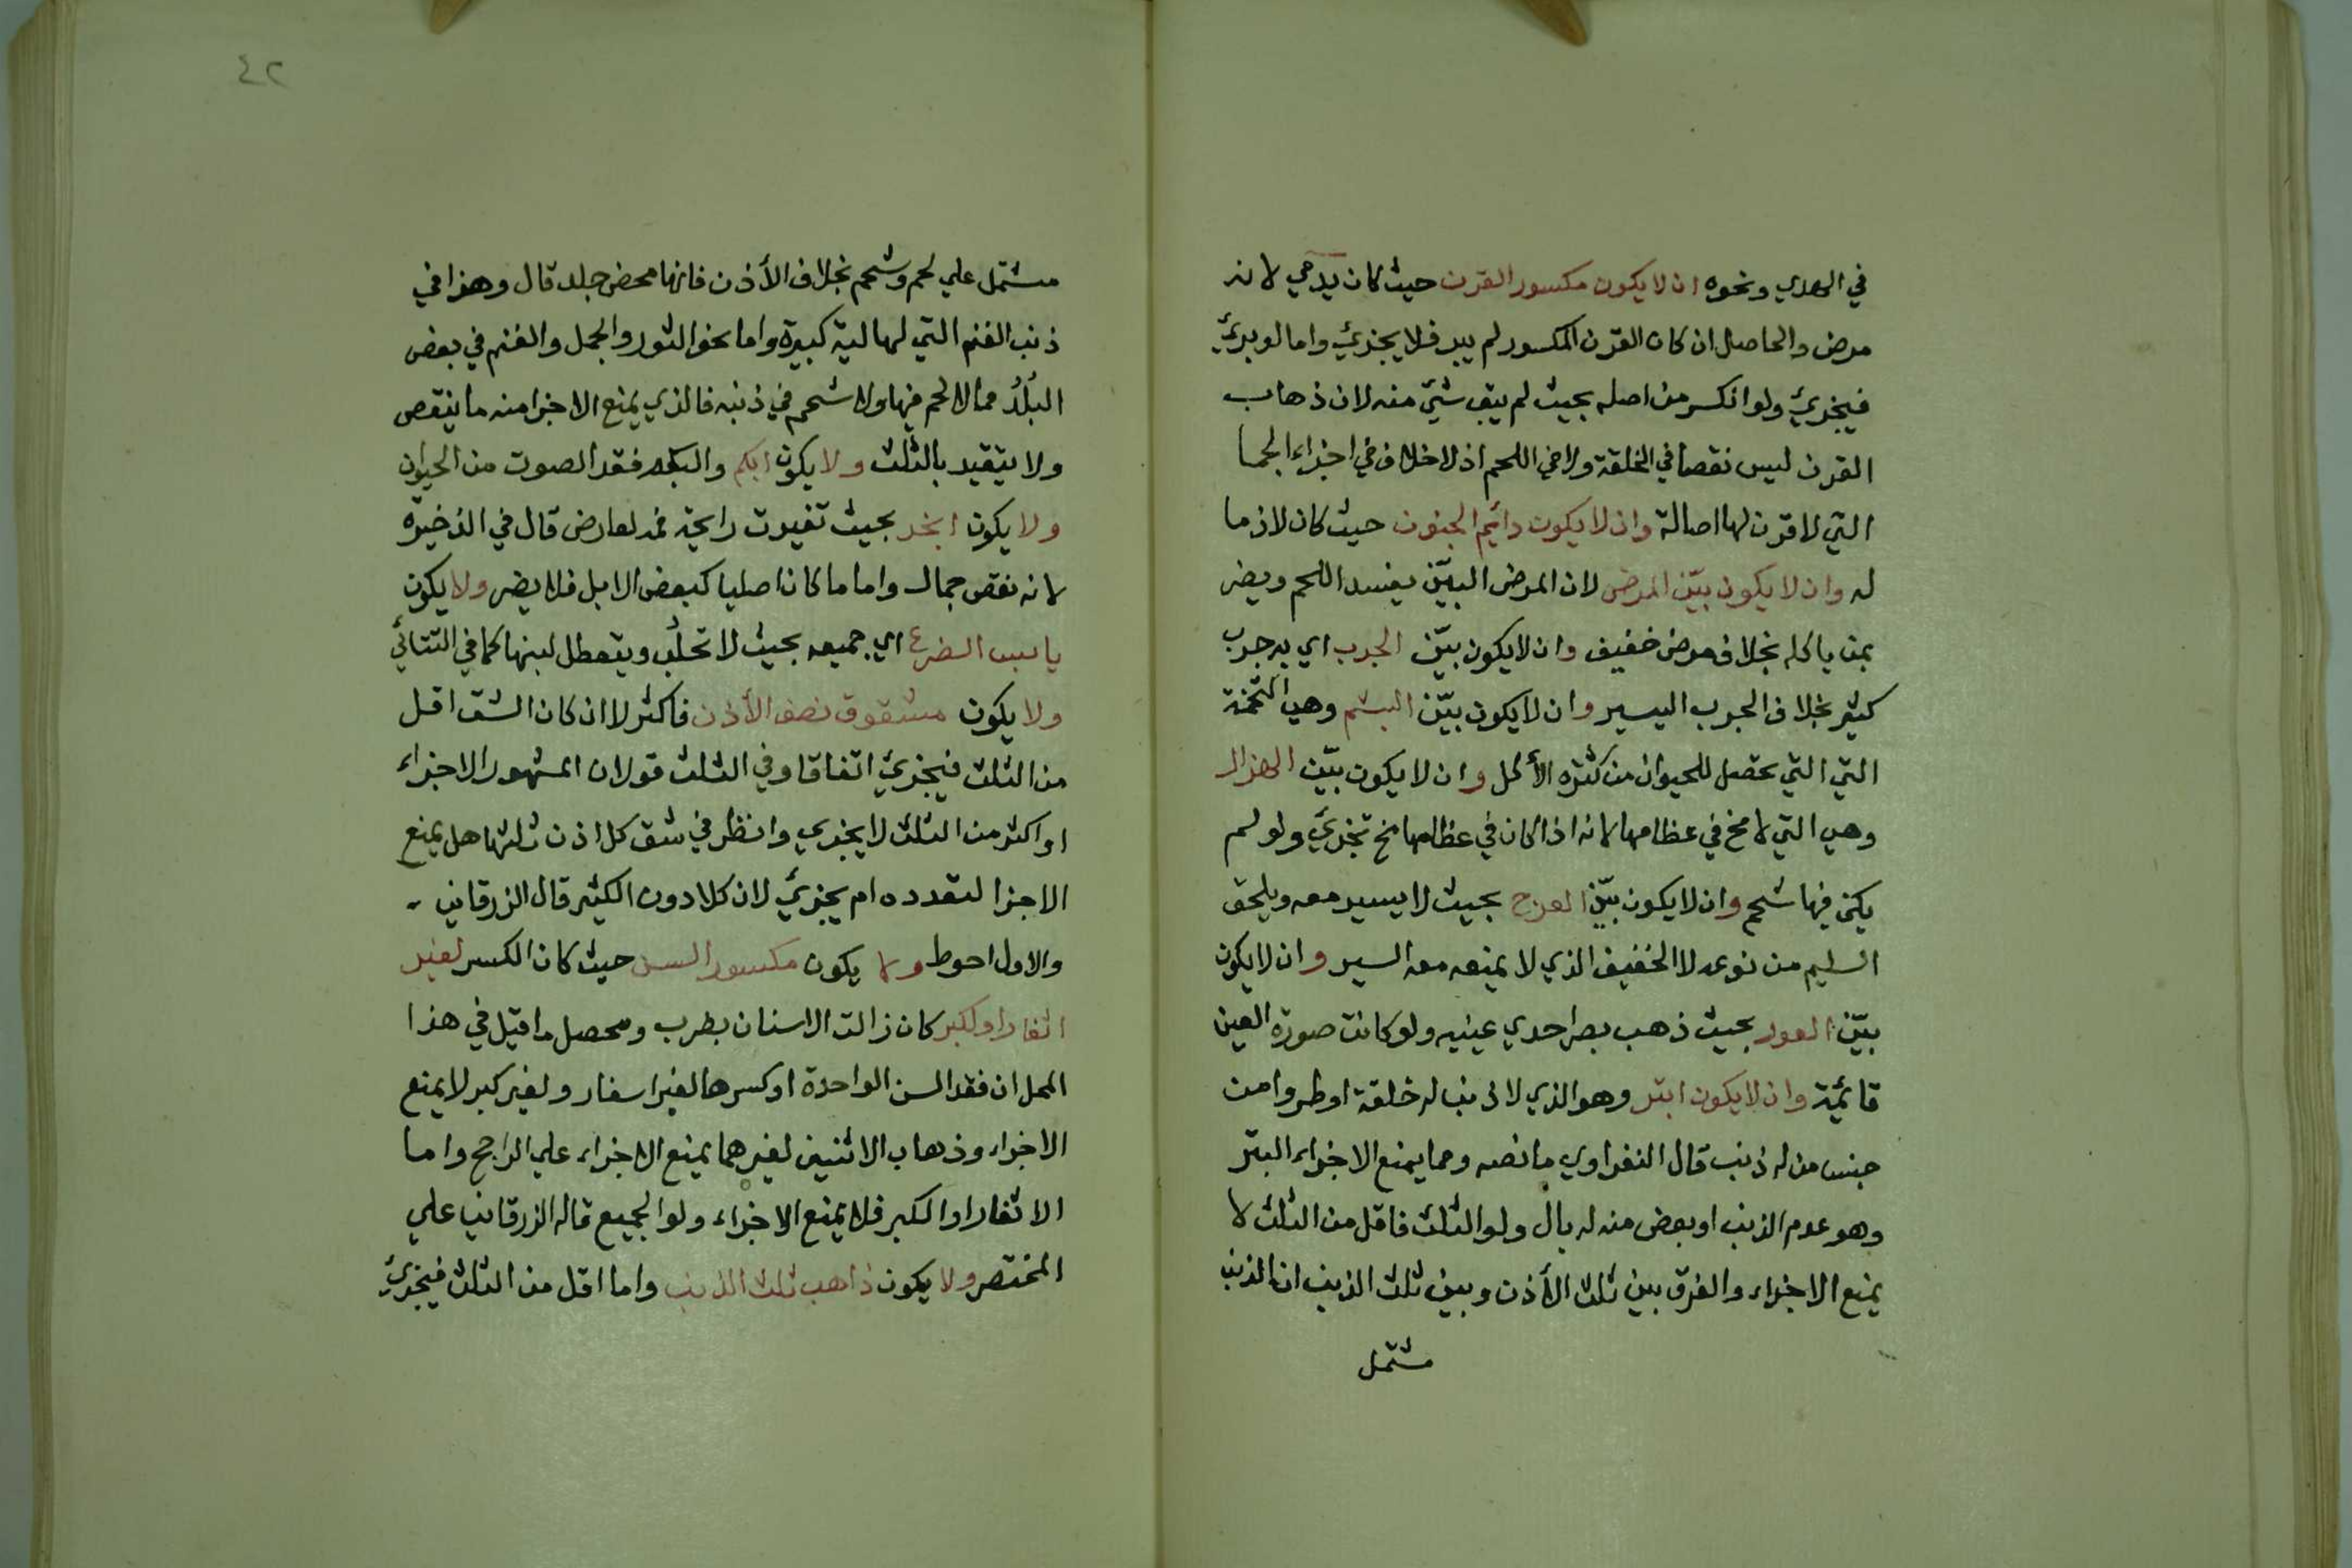 في الهدي ونحوه ان لا يكون مكسور القرن حيث كان يدمي لانه
مرض والحاصل ان كان القرن المكسور لم يبر فلا يجزئ واما لو برئ
فيجزئ ولو انكسر من اصله بحيث لم يبق شئ منه لان ذهاب
القرن ليس نقصا في الخلقة ولا في اللحم اذ لا خلاف في اجزاء الجما
التي لا قرن لها اصالة وان لا يكون دائم الجنون حيث كان لازما
له وان لا يكون بيّن المرض لان المرض البيّن يفسد اللحم ويضر
بمن ياكله بخلاف مرض خفيف وان لا يكون بيّن الجرب اي به جرب
كثير بخلاف الجرب اليسير وان لا يكون بيّن البشم وهي التخمة
التي التي تحصل للحيوان من كثرة الأكل وان لا يكون بيّن الهزال
وهي التي لا مخ في عظامها لانه اذا كان في عظامها مخ تجزئ ولو لم
يكن فيها شحم وان لا يكون بيّن العرج بحيث لا يسير معه ويلحق
السليم من نوعه لا الخفيف الذي لا يمنعه معه السير وان لا يكون
بيّن العور بحيث ذهب بصر احدي عينيه ولو كانت صورة العين
قائمة وان لا يكون ابتر وهو الذي لا ذنب له خلقة او طروا من
جنس من له ذنب قال النفراوي ما نصه ومما يمنع الاجزاء البتر
وهو عدم الذنب او بعض منه له بال ولو الثلث فاقل من الثلث لا
يمنع الاجزاء والفرق بين ثلث الأذن وبين ثلث الذنب ان الذنب
مشتمل
٤٢
مشتمل علي لحم وشحم بخلاف الأذن فانها محض جلد قال وهذا في
ذنب الغنم التي لها لية كبيرة واما نحو الثور والجمل والغنم في بعض
البلد مما لا لحم فيها ولا شحم في ذنبه فالذي يمنع الاجزا منه ما ينقص
ولا يتقيد بالثلث ولا يكون ابكم والبكم فقد الصوت من الحيوان
ولا يكون ابخر بحيث تغيرت رايحة فمه لعارض قال في الذخيرة
لانه نقص جمال واما ما كان اصليا كبعض الابل فلا يضر ولا يكون
يابس الضرع اي جميعه بحيث لا تحلب ويتعطل لبنها كما في التتائي
ولا يكون مشقوق نصف الأذن فاكثر لا ان كان الشق اقل
من الثلث فيجزئ اتفاقا وفي الثلث قولان المشهور الاجزاء
او اكثر من الثلث لا يجزي وانظر في شق كل اذن ثلثها هل يمنع
الاجزا لتعدده ام يجزئ لان كلا دون الكثير قال الزرقاني
والاول احوط ولا يكون مكسور السن حيث كان الكسر لغير
اثغار او لكبر كان زالت الاسنان بضرب ومحصل ما قيل في هذا
المحل ان فقد السن الواحدة او كسرها لغير اسغار ولغير كبر لا يمنع
الاجزاء وذهاب الاثنين لغيرهما يمنع الاجزاء علي الراجح واما
الاثغار او الكبر فلا يمنع الاجزاء ولو الجميع قاله الزرقاني علي
المختصر ولا يكون ذاهب ثلث الذنب واما اقل من الثلث فيجزئ